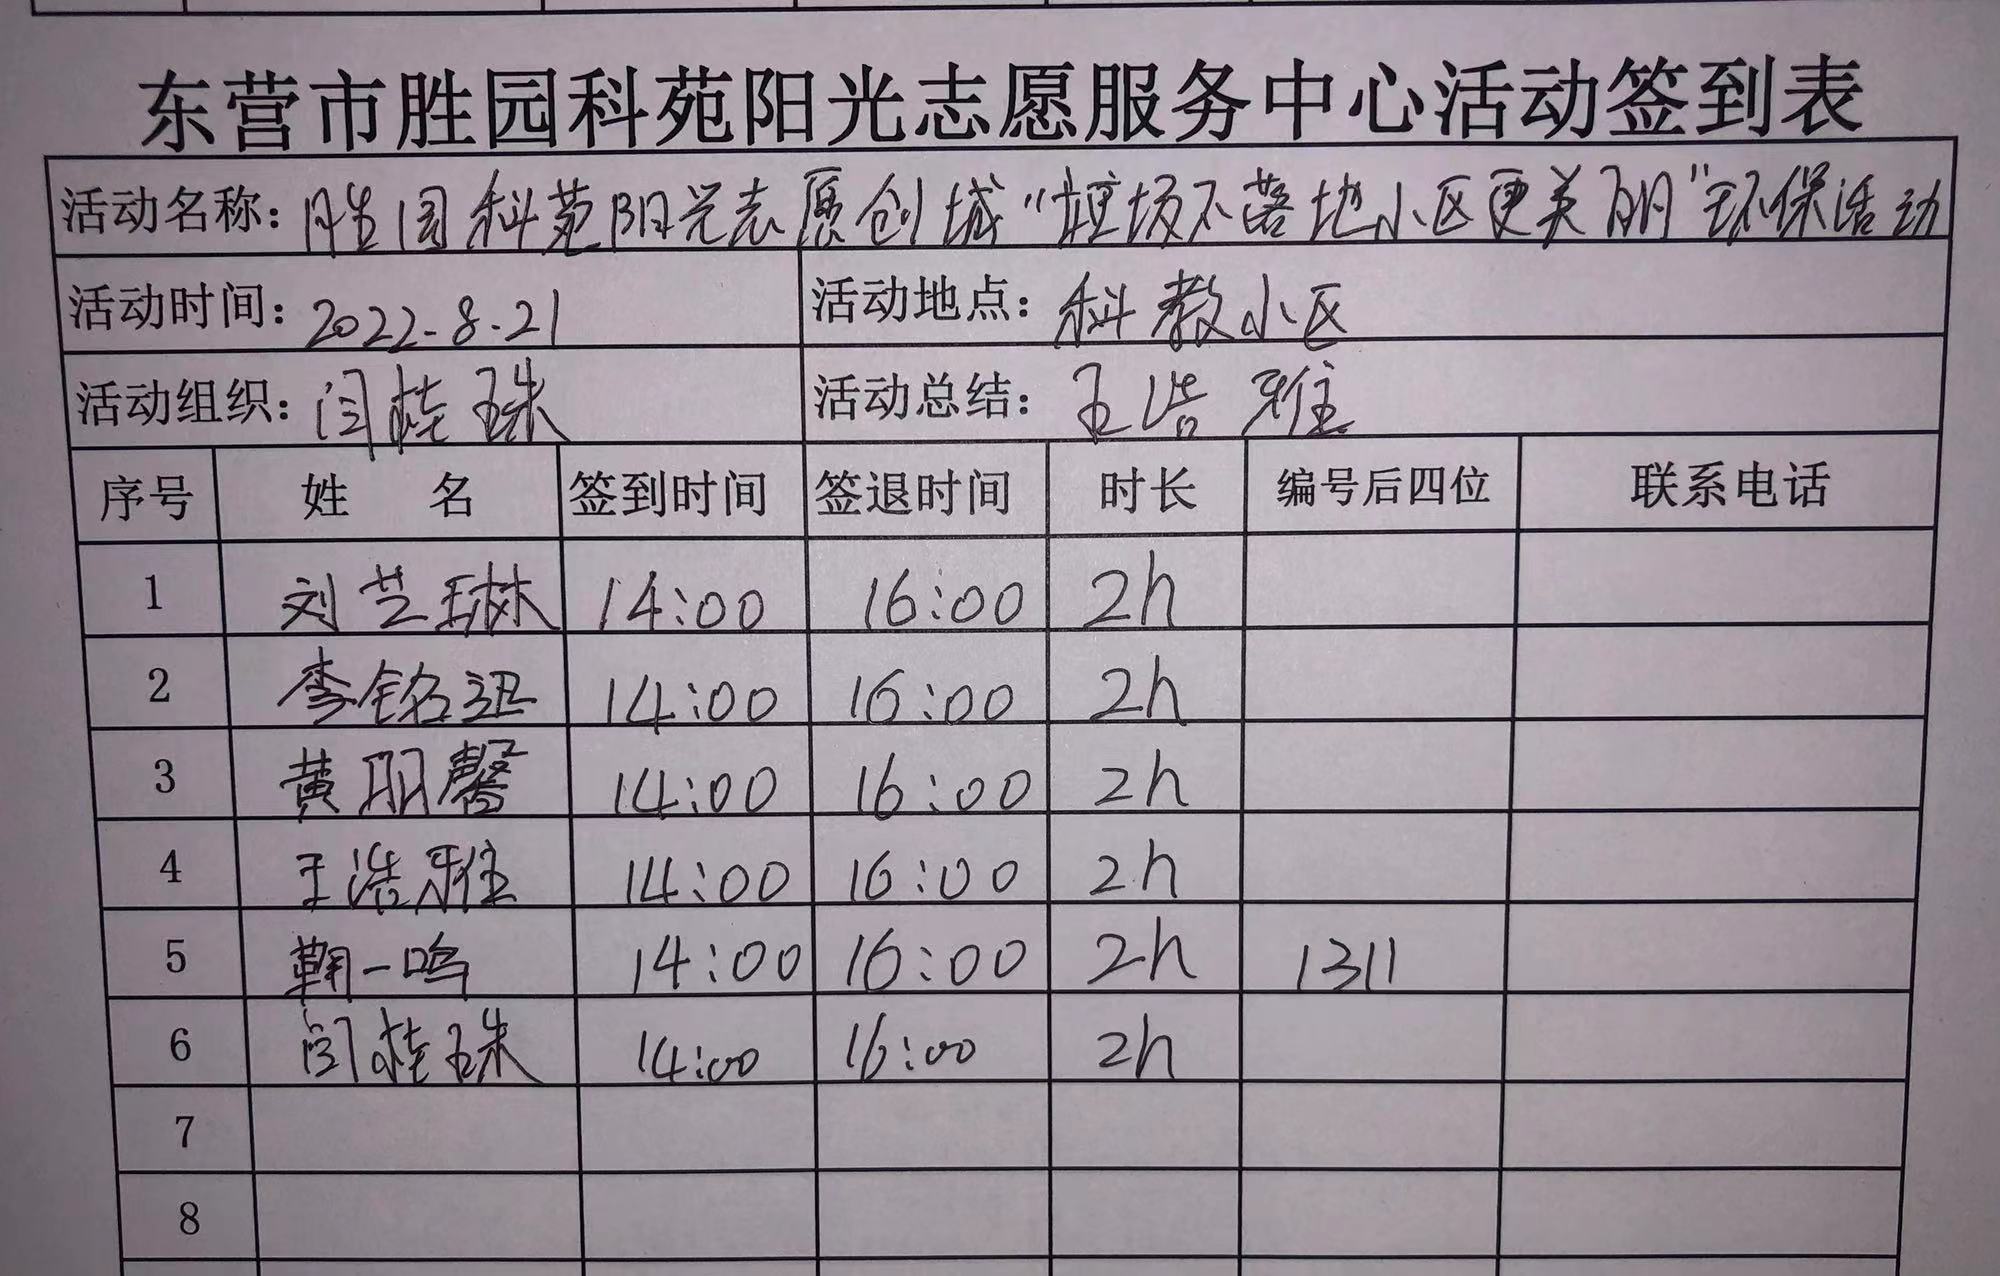 东营市胜园科苑阳光志愿服务中心活动签到表
活动名称：胜园科苑阳光志愿创城“垃圾不落地小区更美丽”环保活动
活动时间：2022.8.21 活动地点：科教小区
活动组织：闫桂珠 活动总结：王浩雅
序号 姓 名 签到时间 签退时间 时长 编号后四位 联系电话
1 刘芝琳 14:00 16:00 2h
2 李铭迅 14:00 16:00 2h
3 黄朋馨 14:00 16:00 2h
4 王浩雅 14:00 16:00 2h
5 鞠一鸣 14:00 16:00 2h 1311
6 闫桂珠 14:00 16:00 2h
7
8